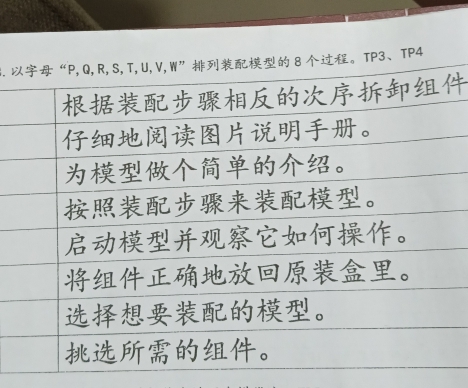 .以字母“P,Q,R,S,T,U,V,W”排列装配模型的8个过程。TP3、TP4
根据装配步骤相反的次序拆卸组件
仔细地阅读图片说明手册。
为模型做个简单的介绍。
按照装配步骤来装配模型。
启动模型并观察它如何操作。
将组件正确地放回原装盒里。
选择想要装配的模型。
挑选所需的组件。